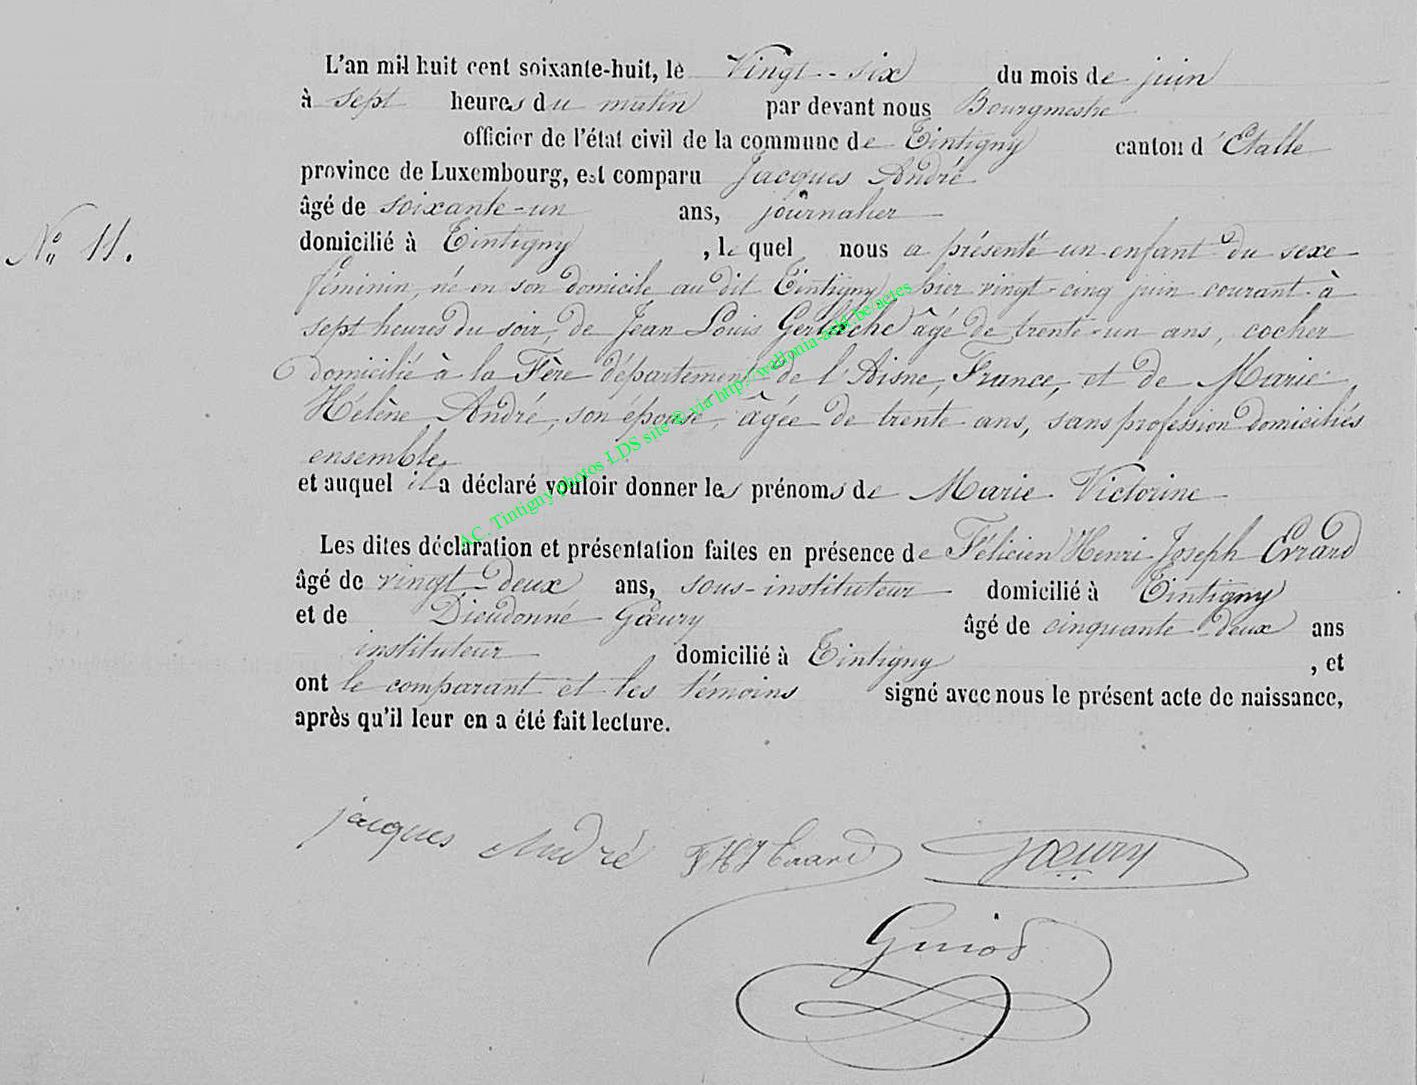 L'an mil huit cent soixante-huit, le Vingt-six du mois de juin
à sept heures du matin par devant nous Bourgmestre
officier de l'état civil de la commune de Tintigny canton d'Etalle
province de Luxembourg, est comparu Jacques André
âgé de soixante-un ans, journalier
N° 11.
domicilié à Tintigny, lequel nous a présenté un enfant du sexe
féminin, né en son domicile au dit Tintigny hier vingt-cinq juin courant à
sept heures du soir, de Jean Louis Gerlache âgé de trente-un ans, cocher
domicilié à la Fère département de l'Aisne, France, et de Marie
Hélène André, son épouse, âgée de trente ans, sans profession domiciliés
ensemble,
et auquel il a déclaré vouloir donner les prénoms de Marie Victorine
Les dites déclaration et présentation faites en présence de Félicien Henri Joseph Evrard
âgé de vingt-deux ans, sous-instituteur domicilié à Tintigny
et de Dieudonné Gœury âgé de cinquante-deux ans
instituteur domicilié à Tintigny, et
ont le comparant et les témoins signé avec nous le présent acte de naissance,
après qu'il leur en a été fait lecture.
jacques André FHJ Evrard Gœury
Guiot
AC. Tintigny photos LDS site © via http://wallonia-asbl.be/actes